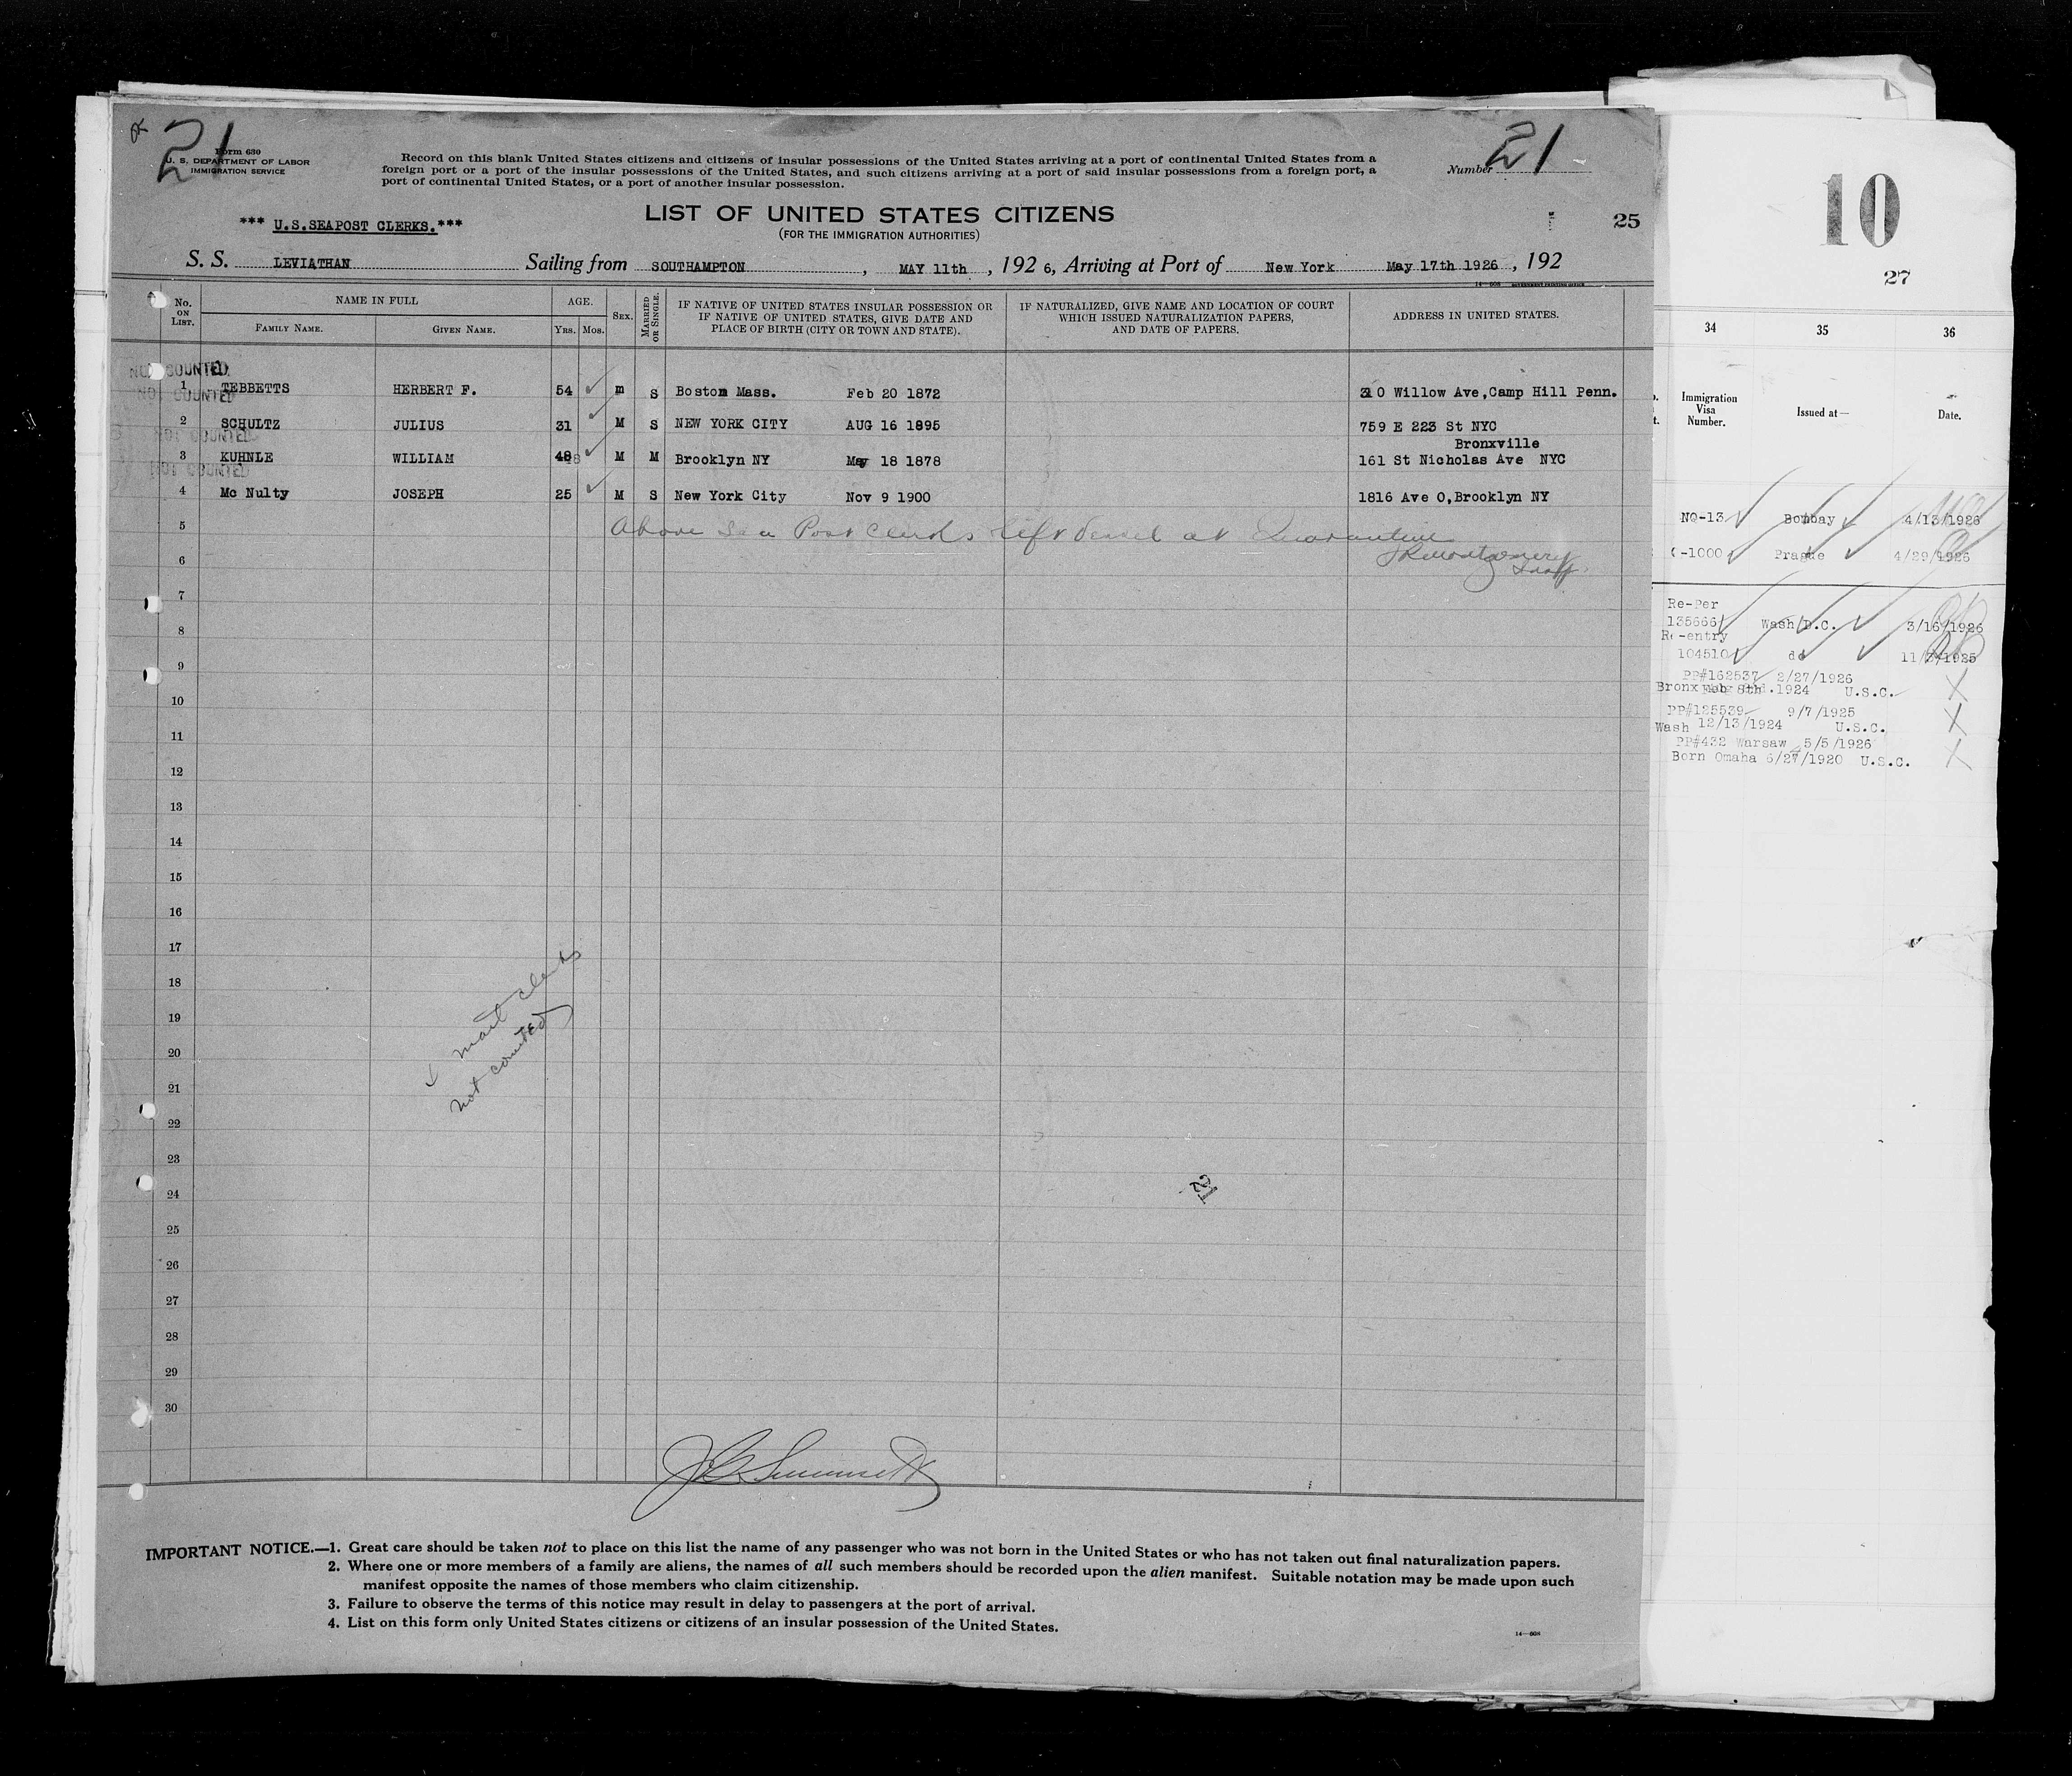 21
Form 630
U. S. DEPARTMENT OF LABOR
IMMIGRATION SERVICE
Record on this blank United States citizens and citizens of insular possessions of the United States arriving at a port of continental United States from a
foreign port or a port of the insular possessions of the United States, and such citizens arriving at a port of said insular possessions from a foreign port, a
port of continental United States, or a port of another insular possession.
Number 21
*** U.S.SEAPOST CLERKS.***
LIST OF UNITED STATES CITIZENS
(FOR THE IMMIGRATION AUTHORITIES)
25
S. S. LEVIATHAN Sailing from SOUTHAMPTON , MAY 11th , 192 6, Arriving at Port of New York May 17th 1926 , 192
14—608
No. ON LIST. NAME IN FULL FAMILY NAME. GIVEN NAME. AGE. YRS. MOS. SEX. MARRIED OR SINGLE. IF NATIVE OF UNITED STATES INSULAR POSSESSION OR IF NATIVE OF UNITED STATES, GIVE DATE AND PLACE OF BIRTH (CITY OR TOWN AND STATE). IF NATURALIZED, GIVE NAME AND LOCATION OF COURT WHICH ISSUED NATURALIZATION PAPERS, AND DATE OF PAPERS. ADDRESS IN UNITED STATES.
NOT COUNTED
1 TEBBETTS HERBERT F. 54 m S Boston Mass. Feb 20 1872 310 Willow Ave,Camp Hill Penn.
NOT COUNTED
2 SCHULTZ JULIUS 31 M S NEW YORK CITY AUG 16 1895 759 E 223 St NYC
NOT COUNTED
Bronxville
3 KUHNLE WILLIAM 48 M M Brooklyn NY May 18 1878 161 St Nicholas Ave NYC
NOT COUNTED
4 Mc Nulty JOSEPH 25 M S New York City Nov 9 1900 1816 Ave O,Brooklyn NY
5 Above Sea Post Clerks left vessel at Quarantine
6
7
8
9
10
11
12
13
14
15
16
17
18
19
20
21
22
23
24
25
26
27
28
29
30
mail clerks
not counted
21
IMPORTANT NOTICE.—1. Great care should be taken not to place on this list the name of any passenger who was not born in the United States or who has not taken out final naturalization papers.
2. Where one or more members of a family are aliens, the names of all such members should be recorded upon the alien manifest. Suitable notation may be made upon such
manifest opposite the names of those members who claim citizenship.
3. Failure to observe the terms of this notice may result in delay to passengers at the port of arrival.
4. List on this form only United States citizens or citizens of an insular possession of the United States.
14—608
10
27
34 35 36
Immigration Visa Number. Issued at— Date.
NQ-13 Bombay 4/13/1926
-1000 Prague 4/29/1926
Re-Per
135666 Wash D.C. 3/16/1926
Re-entry
104510 do 11/ /1925
PP#162537 2/27/1926
Bronx 1924 U.S.C.
PP#125539 9/7/1925
Wash 12/13/1924 U.S.C.
PP#432 Warsaw 5/5/1926
Born Omaha 6/27/1920 U.S.C.